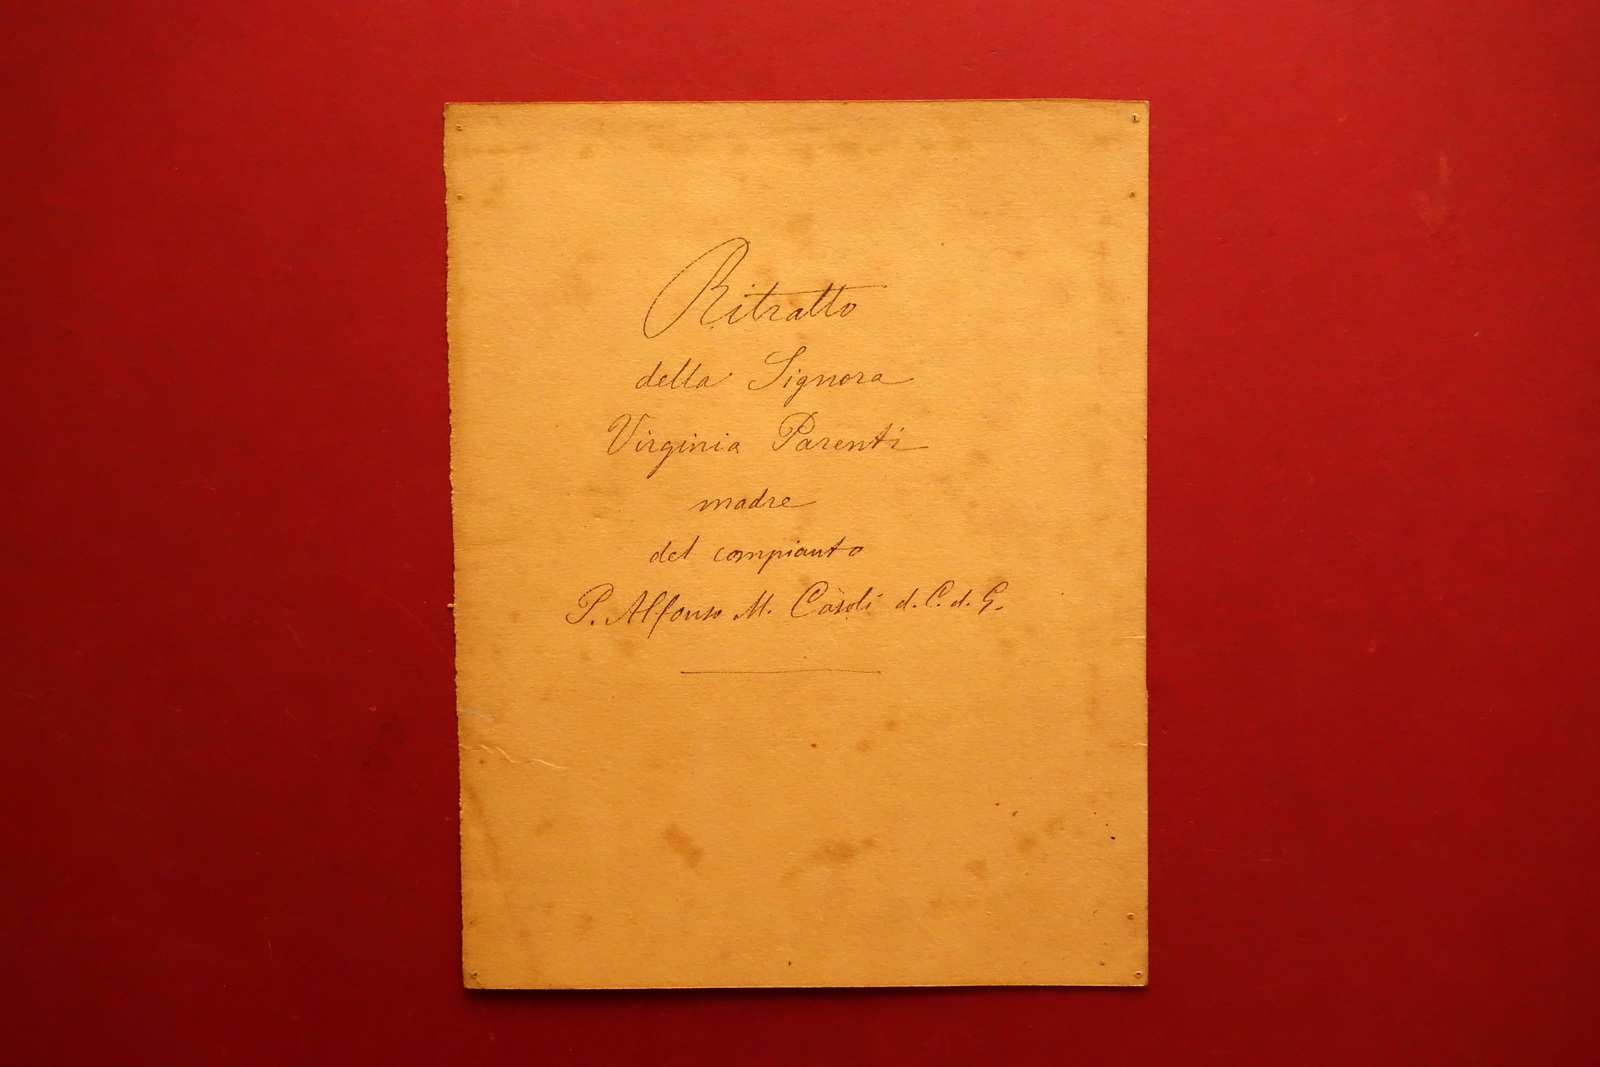 Ritratto
della Signora
Virginia Parenti
madre
del compianto
P. Alfonso M. Casoli d. C. d. G.